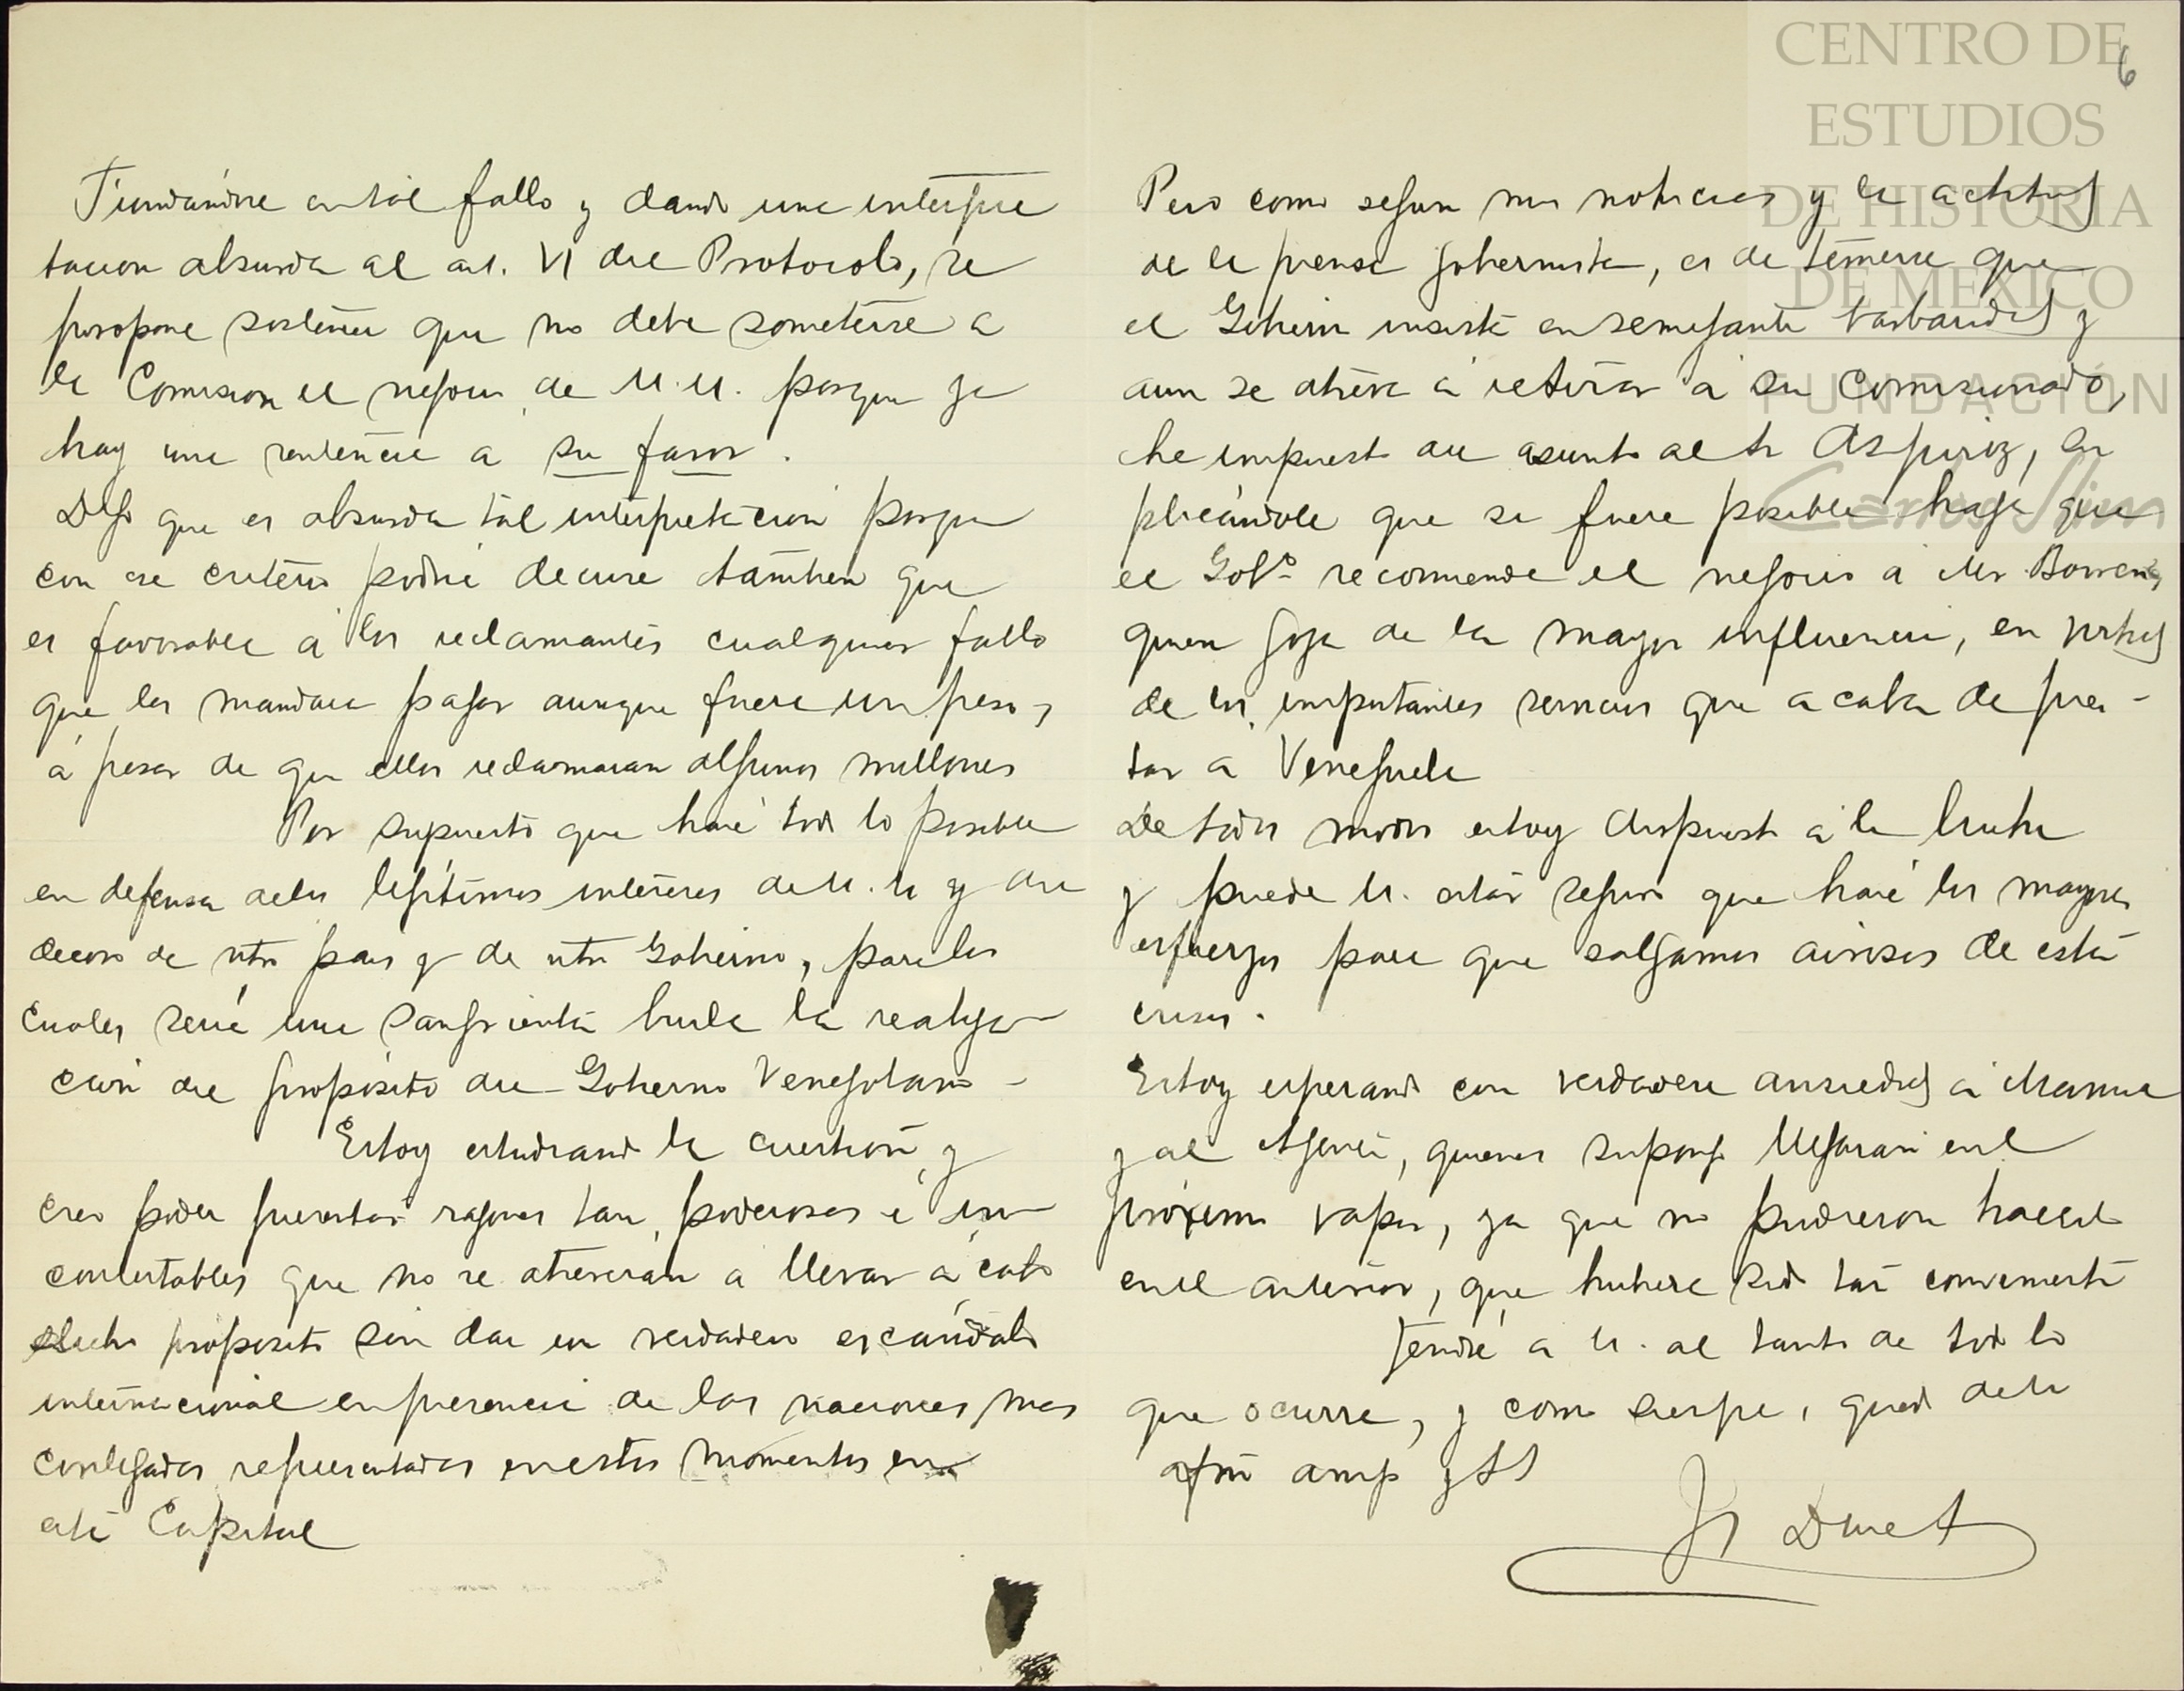 Fundándose en tal fallo y dando una interpre
tacion absurda al art. VI del Protocolo, se
propone sostener que no debe someterse a
la Comision el negocio de U.U. porque ya
hay una sentencia a su favor.
Digo que es absurda tal interpretacion porque
con ese criterio podria decirse tambien que
es favorable á los reclamantes cualquier fallo
que les mandara pagar aunque fuera un peso,
á pesar de que ellos reclamaran algunos millones
Por supuesto que haré todo lo posible
en defensa de los legítimos intereses de U.U y del
decoro de ntro pais y de ntro Gobierno, para los
cuales seria una sangrienta burla la realiza
cion del propósito del Gobierno Venezolano -
Estoy estudiando la cuestion y
creo poder presentar razones tan poderosas é in
contestables que no se atreverán a llevar á cabo
dicho proposito sin dar un verdadero escándalo
internacional en presencia de las naciones mas
civilizadas representadas en estos momentos en
esta Capital
6
Pero como segun mis noticias y la actitud
de la prensa gobiernista, es de temerse que
el Gobierno insista en semejante barbaridad y
aun se atreva á retirar á su Comisionado,
he impuesto del asunto al Sr Aspiroz, su
plicándole que si fuere posible haga que
el Gobo recomiende el negocio á Mr. Bowen,
quien goza de la mayor influencia, en virtud
de los importantes servicios que acaba de pres-
tar a Venezuela
De todos modos estoy dispuesto á la lucha
y puede U. estar seguro que haré los mayores
esfuerzos para que salgamos airosos de esta
crisis.
Estoy esperando con verdadera ansiedad á
y al Agente, quienes supongo llegaran en el
próximo vapor, ya que no pudieron hacerlo
en el anterior, que hubiera sido tan conveniente
Tendré a U. al tanto de todo lo
que ocurra, y como siempre, quedo de U
afmo amigo y SS
Duret
CENTRO DE
ESTUDIOS
DE HISTORIA
DE MÉXICO
FUNDACIÓN
Carlos Slim